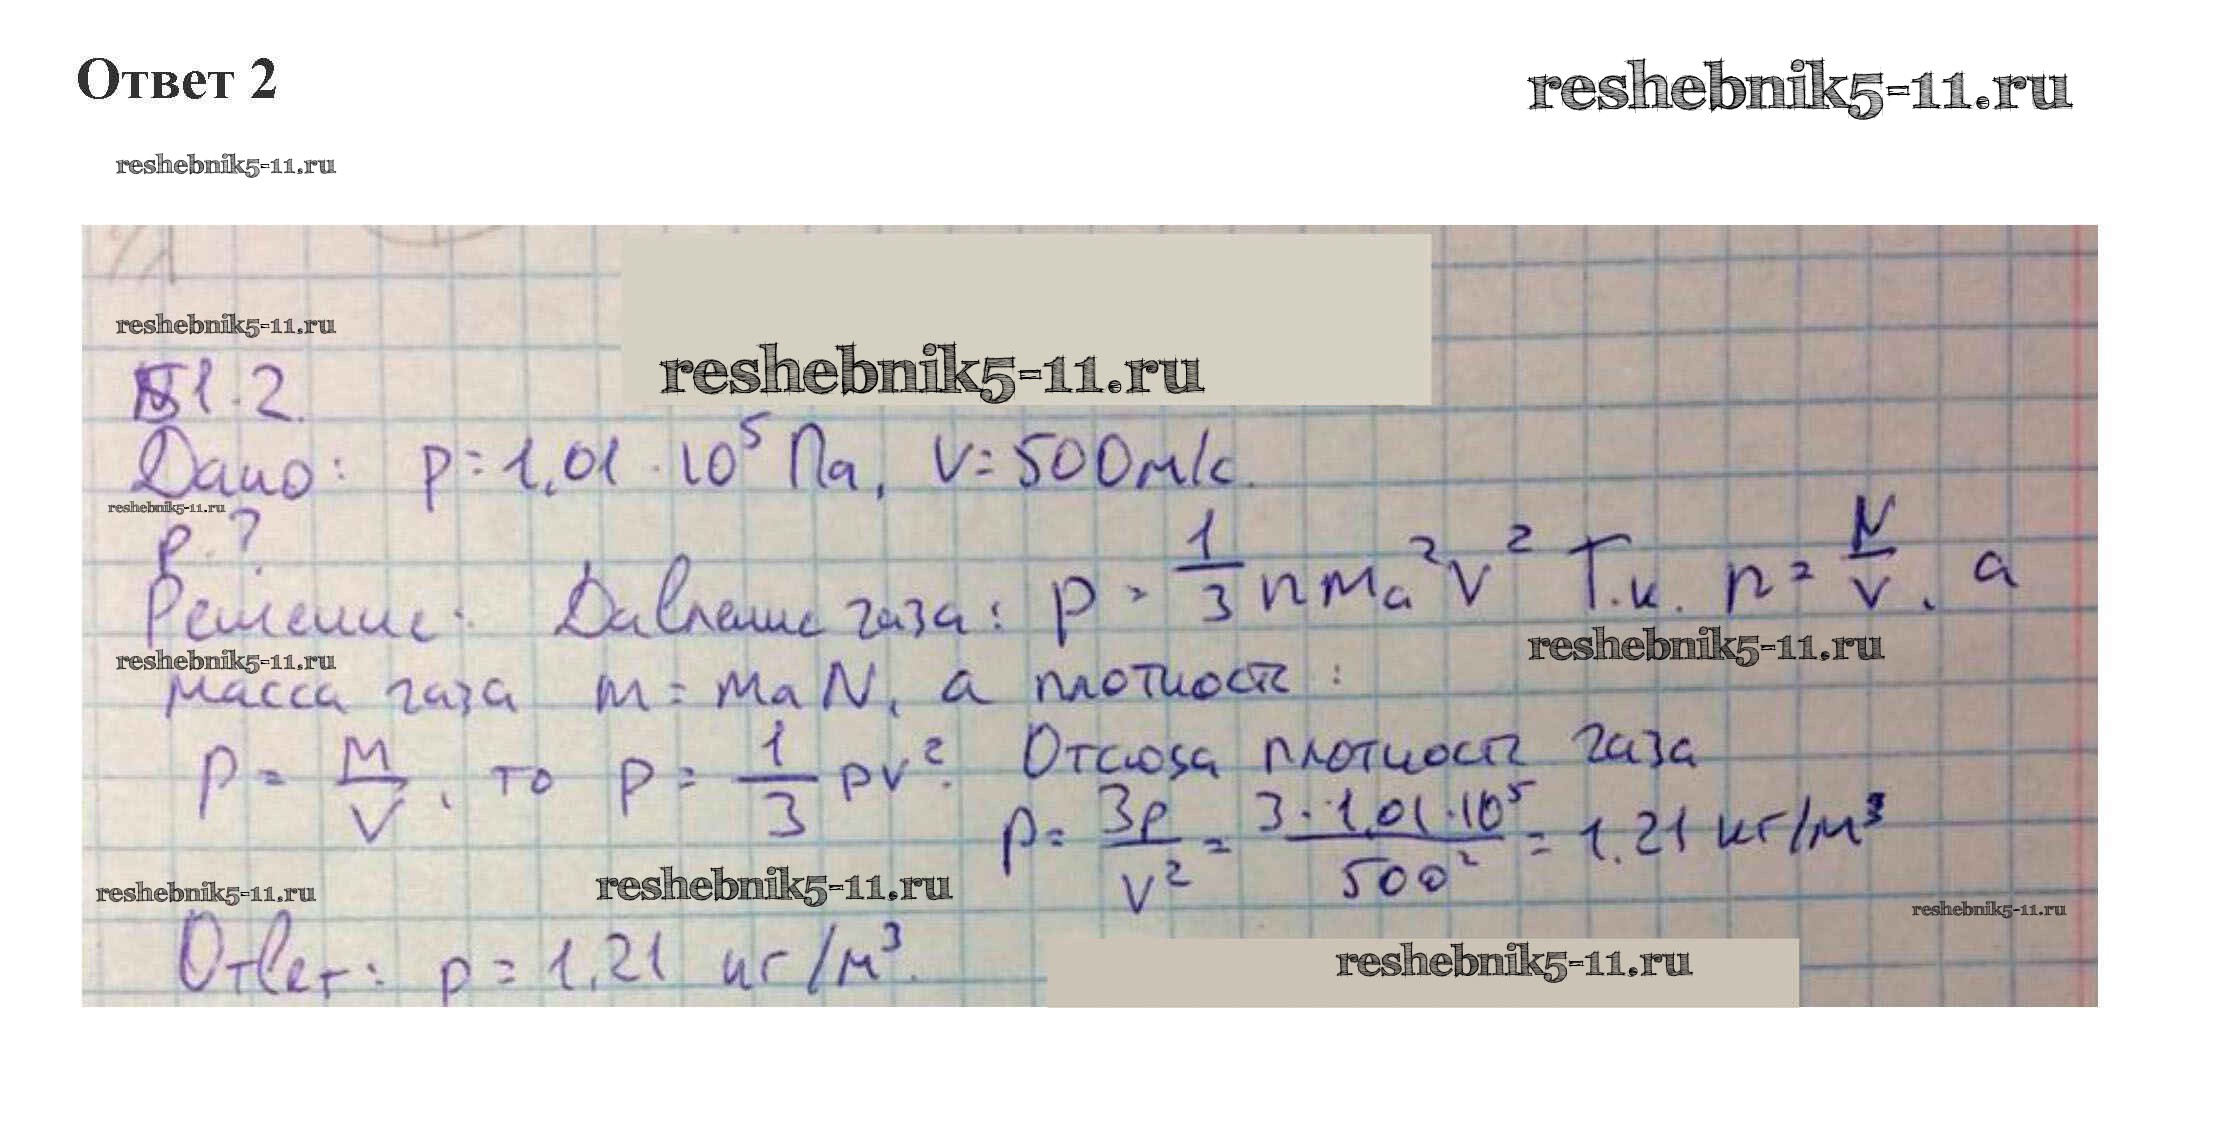 Ответ 2
reshebnik5-11.ru
reshebnik5-11.ru
reshebnik5-11.ru
reshebnik5-11.ru
51.2.
Дано: p = 1,01 · 10⁵ Па, v = 500 м/с.
reshebnik5-11.ru
p - ?
Решение: Давление газа: p = 1/3 n ma² v² Т.к. n = N/V, а
reshebnik5-11.ru
reshebnik5-11.ru
масса газа m = ma N, а плотность:
p = M/V, то p = 1/3 pv². Отсюда плотность газа
p = 3p/v² = 3 · 1,01 · 10⁵/500² = 1.21 кг/м³
reshebnik5-11.ru
reshebnik5-11.ru
reshebnik5-11.ru
Ответ: p = 1.21 кг/м³.
reshebnik5-11.ru